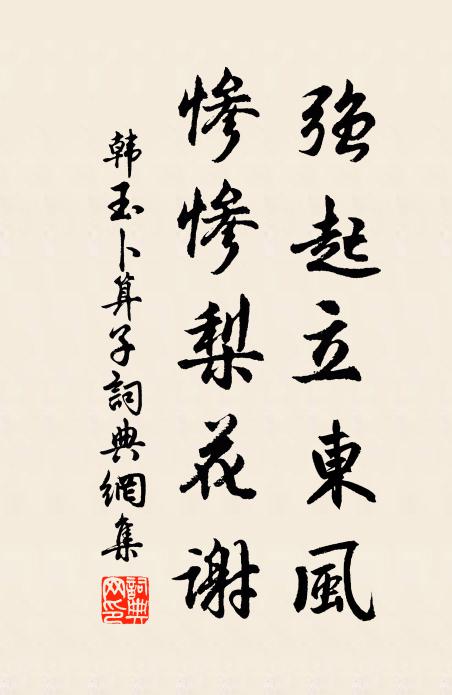 強起立東風
慘慘梨花謝
韓玉卜算子詞典網集
詞典网印